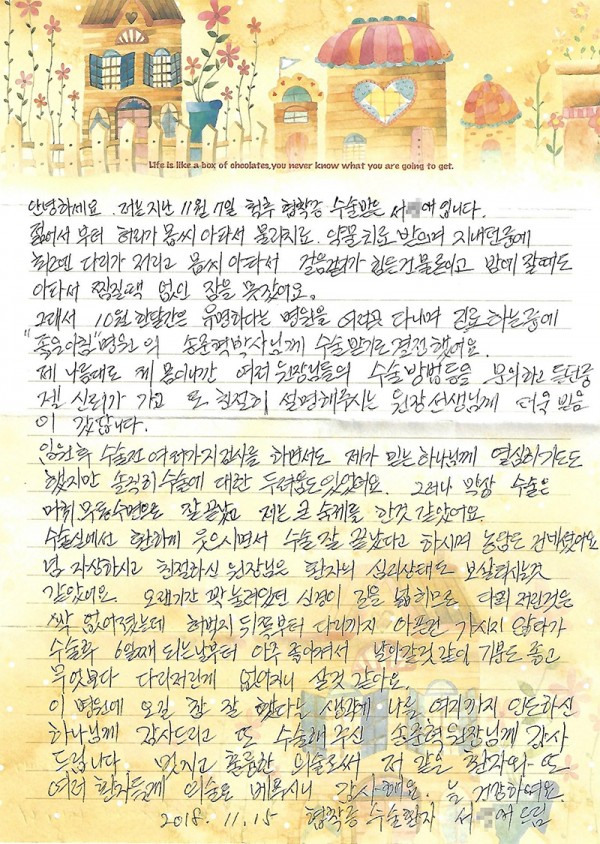 Life is like a box of chocolates, you never know what you are going to get.
안녕하세요. 저는 지난 11월 7일 척추 협착증 수술받은 서 애 입니다.
젊어서 부터 허리가 몹씨 아파서 물리치료. 약물치료 받으며 지내던중에
최근엔 다리가 저리고 몹씨 아파서 걸음걷기가 힘든건 물론이고 밤에 잘때도
아파서 찜질팩 없인 잠을 못잤어요.
그래서 10월 한달간은 유명하다는 병원을 여러곳 다니며 진료 하는중에
"좋은아침"병원의 송준혁박사님께 수술받기로 결정했어요.
제 나름대로 제 몸이니깐 여러 원장님들의 수술방법등을 문의하고 듣던중
젤 신뢰가 가고 또 친절히 설명해주시는 원장선생님께 더욱 믿음
이 갔답니다.
입원후 수술전 여러가지검사를 하면서도 제가 믿는 하나님께 열심히기도도
했지만 솔직히 수술에 대한 두려움도 있었어요. 그러나 막상 수술은
마취 무통수면으로 잘 끝났고 저는 큰 숙제를 한것 같았어요.
수술실에선 환하게 웃으시면서 수술 잘 끝났다고 하시며 농담도 건네셨어요
넘 자상하시고 친절하신 원장님은 환자의 심리상태도 보살펴시는것
같았어요. 오래기간 꽉 눌려있던 신경이 길을 넓히므로 다리 저린것은
싹 없어졌는데 허벅지 뒤쪽부터 다리까지 아픈건 가시지 않다가
수술후 6일째 되는날부터 아주 좋아져서 날아갈것같이 기분도 좋고
무엇보다 다리저린게 없어지니 살것 같아요.
이 병원에 오길 참 잘 했다는 생각에 나를 여기까지 인도하신
하나님께 감사드리고 또 수술해 주신 송준혁원장님께 감사
드립니다. 멋지고 훌륭한 의술로써 저 같은 환자와 또
여러 환자들께 의술을 베푸시니 감사해요. 늘 건강하세요.
2018. 11. 15 협착증 수술환자 서 애 드림